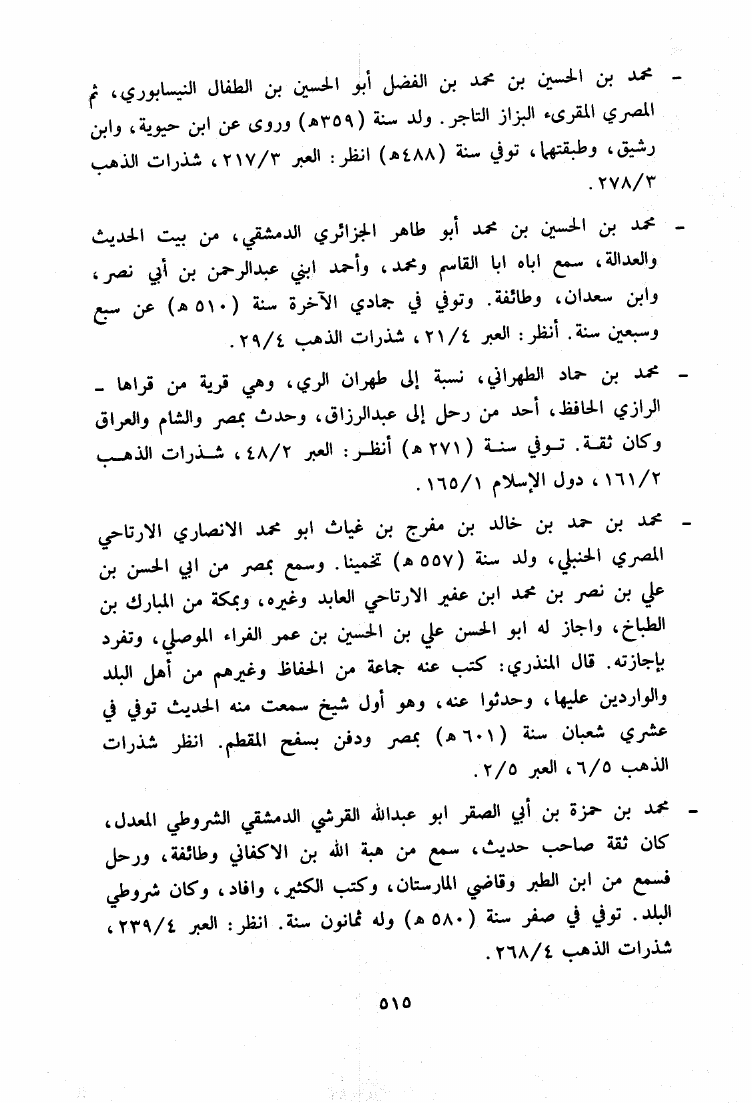 ـ محمد بن الحسين بن محمد بن الفضل أبو الحسين بن الطفال النيسابوري، ثم
المصري المقرىء البزاز التاجر. ولد سنة (٣٥٩هـ) وروى عن ابن حيوية، وابن
رشيق، وطبقتهما، توفي سنة (٤٨٨هـ) انظر: العبر ٢١٧/٣، شذرات الذهب
٢٧٨/٣.
ـ محمد بن الحسين بن محمد أبو طاهر الجزائري الدمشقي، من بيت الحديث
والعدالة، سمع اباه ابا القاسم ومحمد، وأحمد ابني عبدالرحمن بن أبي نصر،
وابن سعدان، وطائفة. وتوفي في جمادي الآخرة سنة (٥١٠ هـ) عن سبع
وسبعين سنة. أنظر: العبر ٢١/٤، شذرات الذهب ٢٩/٤.
ـ محمد بن حماد الطهراني، نسبة إلى طهران الري، وهي قرية من قراها ـ
الرازي الحافظ، أحد من رحل إلى عبدالرزاق، وحدث بمصر والشام والعراق
وكان ثقة. توفي سنة (٢٧١ هـ) أنظر: العبر ٤٨/٢، شذرات الذهب
١٦١/٢، دول الإسلام ١٦٥/١.
ـ محمد بن حمد بن خالد بن مفرج بن غياث ابو محمد الانصاري الارتاحي
المصري الحنبلي، ولد سنة (٥٥٧ هـ) تخمينا. وسمع بمصر من ابي الحسن بن
علي بن نصر بن محمد ابن عفير الارتاحي العابد وغيره، وبمكة من المبارك بن
الطباخ، واجاز له ابو الحسن علي بن الحسين بن عمر الفراء الموصلي، وتفرد
بإجازته. قال المنذري: كتب عنه جماعة من الحفاظ وغيرهم من أهل البلد
والواردين عليها، وحدثوا عنه، وهو أول شيخ سمعت منه الحديث توفي في
عشري شعبان سنة (٦٠١ هـ) بمصر ودفن بسفح المقطم. انظر شذرات
الذهب ٦/٥، العبر ٢/٥.
ـ محمد بن حمزة بن أبي الصقر ابو عبدالله القرشي الدمشقي الشروطي المعدل،
كان ثقة صاحب حديث، سمع من هبة الله بن الاكفاني وطائفة، ورحل
فسمع من ابن الطبر وقاضي المارستان، وكتب الكثير، وافاد، وكان شروطي
البلد. توفي في صفر سنة (٥٨٠ هـ) وله ثمانون سنة. انظر: العبر ٢٣٩/٤،
شذرات الذهب ٢٦٨/٤.
٥١٥